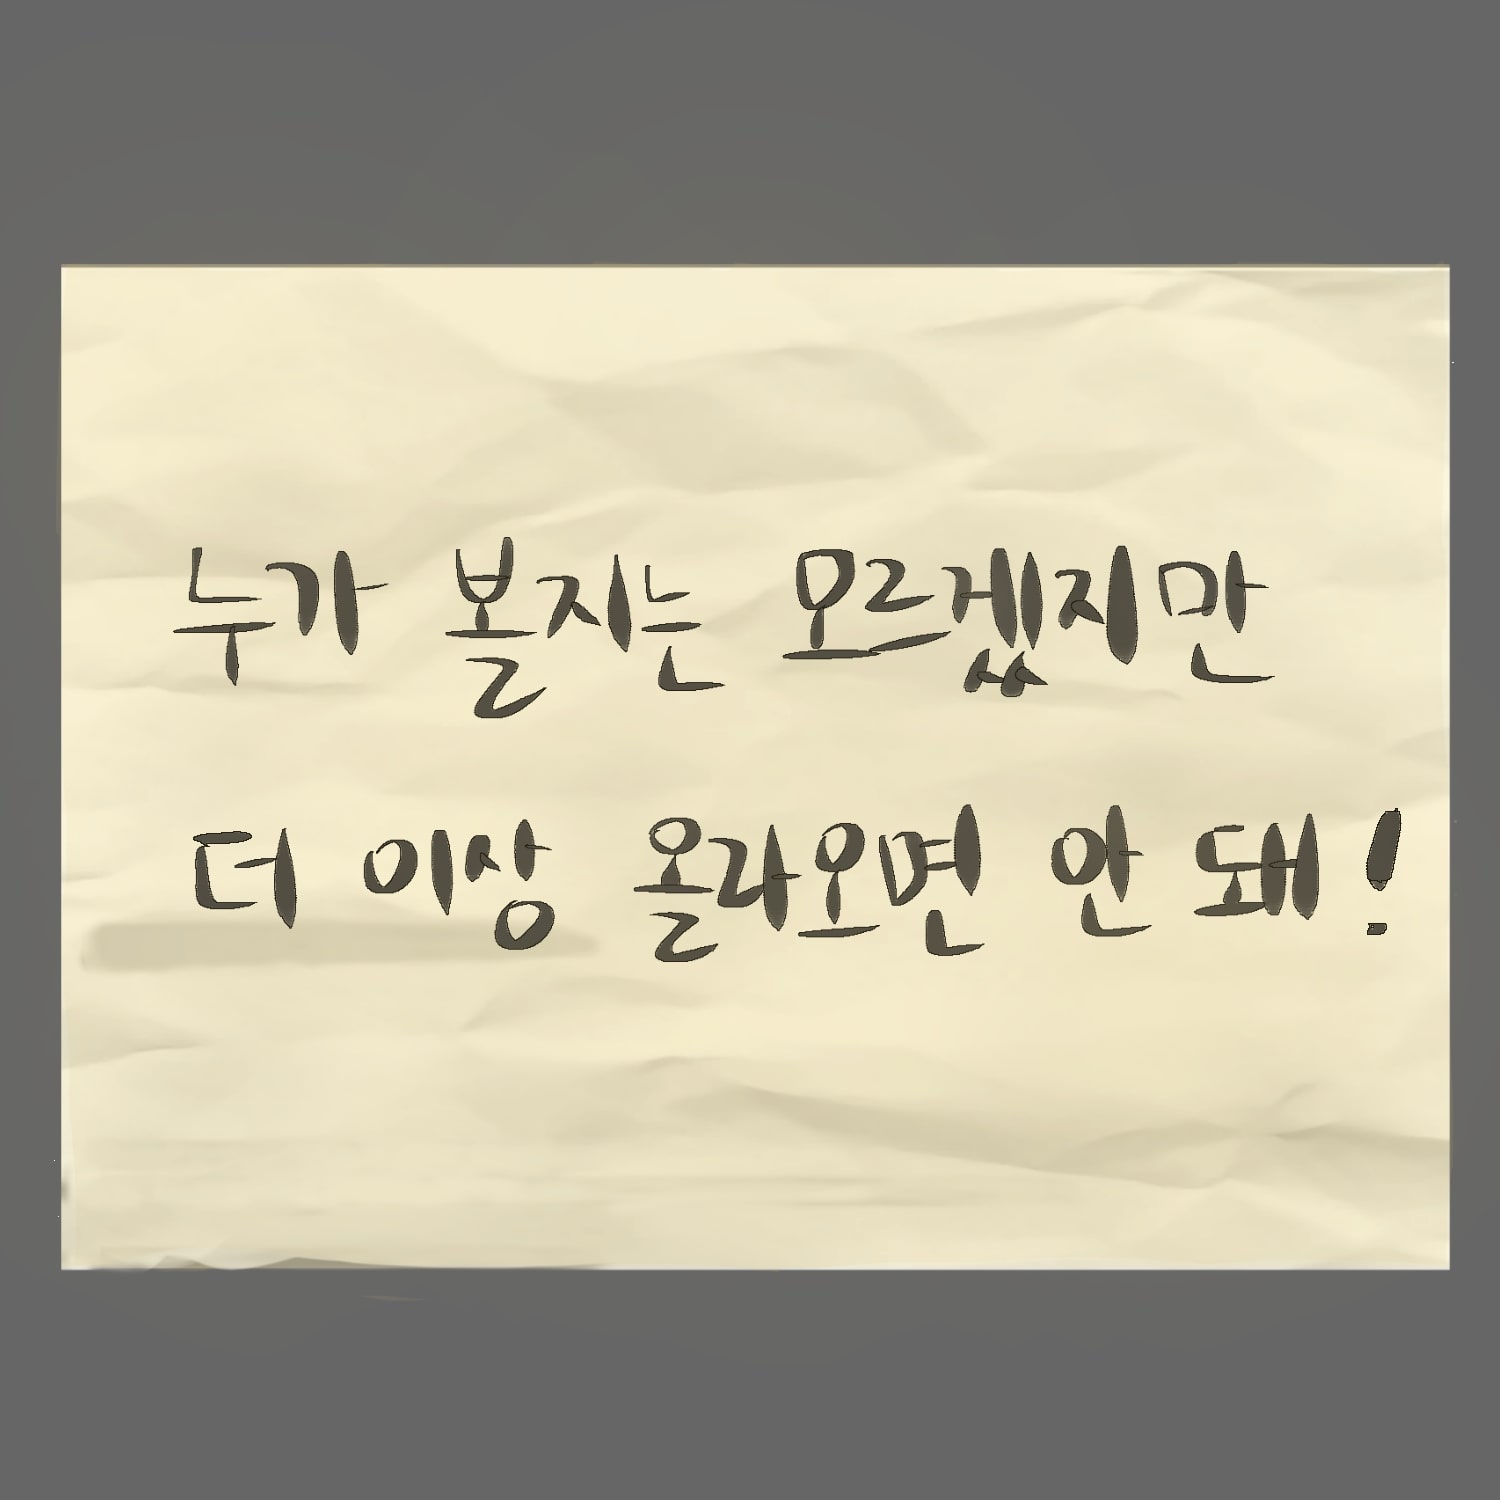 누가 볼지는 모르겠지만
더 이상 올라오면 안 돼!